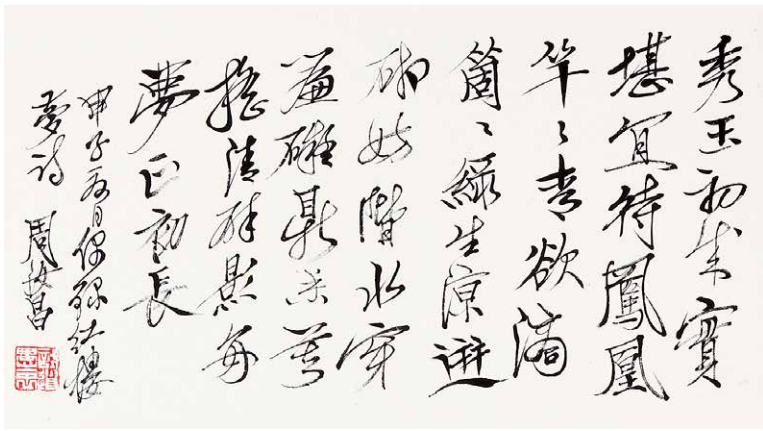 秀玉初成實
堪宜待鳳凰
竿〻青欲滴
箇〻綠生涼迸
砌妨階水穿
簾礙鼎香莫
搖清碎影好
夢正初長
甲子夏日偶錄紅樓
夢詩 周汝昌